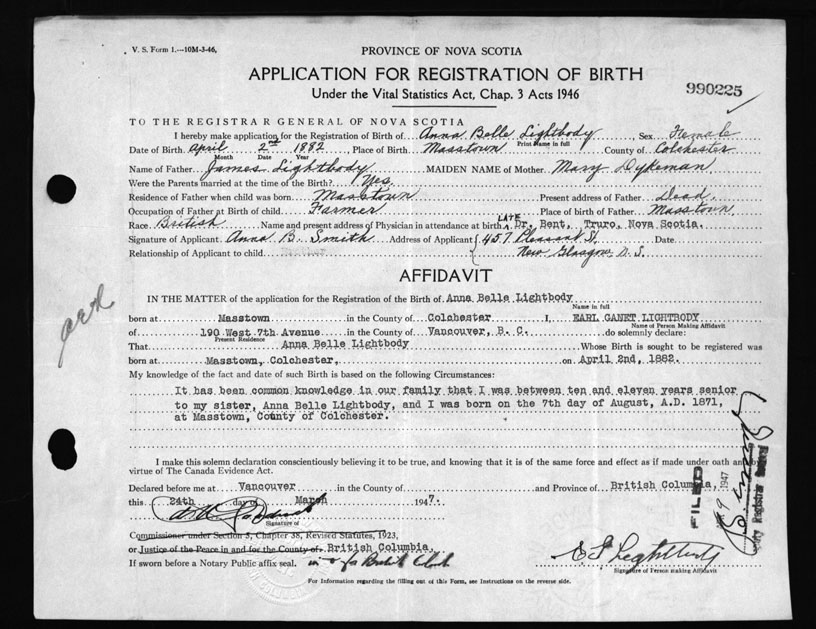 V. S. Form 1.—10M-3-46,
PROVINCE OF NOVA SCOTIA
APPLICATION FOR REGISTRATION OF BIRTH
990225
Under the Vital Statistics Act, Chap. 3 Acts 1946
TO THE REGISTRAR GENERAL OF NOVA SCOTIA
I hereby make application for the Registration of Birth of Anna Belle Lightbody Sex Female
Print Name in full
Date of Birth April 2nd 1882, Place of Birth Masstown County of Colchester
Month Date Year
Name of Father James Lightbody MAIDEN NAME of Mother Mary Dykeman
Were the Parents married at the time of the Birth? Yes.
Residence of Father when child was born Masstown Present address of Father Dead.
Occupation of Father at Birth of child Farmer Place of birth of Father Masstown.
Race British Name and present address of Physician in attendance at birth LATE Dr. Bent, Truro, Nova Scotia.
Signature of Applicant Anna B. Smith Address of Applicant { 457 Pleasant St. Date
Relationship of Applicant to child New Glasgow, N. S.
AFFIDAVIT
IN THE MATTER of the application for the Registration of the Birth of Anna Belle Lightbody
Name in full
born at Masstown in the County of Colchester I, EARL GANET LIGHTBODY
Name of Person Making Affidavit
of 190 West 7th Avenue in the County of Vancouver, B. C. do solemnly declare:
Present Residence
That Anna Belle Lightbody Whose Birth is sought to be registered was
born at Masstown, Colchester, on April 2nd, 1882.
My knowledge of the fact and date of such Birth is based on the following Circumstances:
It has been common knowledge in our family that I was between ten and eleven years senior
to my sister, Anna Belle Lightbody, and I was born on the 7th day of August, A.D. 1871,
at Masstown, County of Colchester.
I make this solemn declaration conscientiously believing it to be true, and knowing that it is of the same force and effect as if made under oath and by
virtue of The Canada Evidence Act.
Declared before me at Vancouver in the County of and Province of British Columbia,
this 24th day of March 1947.
Signature of
Commissioner under Section 5, Chapter 38, Revised Statutes, 1923,
or Justice of the Peace in and for the County of British Columbia.
If sworn before a Notary Public affix seal.
Signature of Person making Affidavit
For Information regarding the filling out of this Form, see Instructions on the reverse side.
FILED
1947